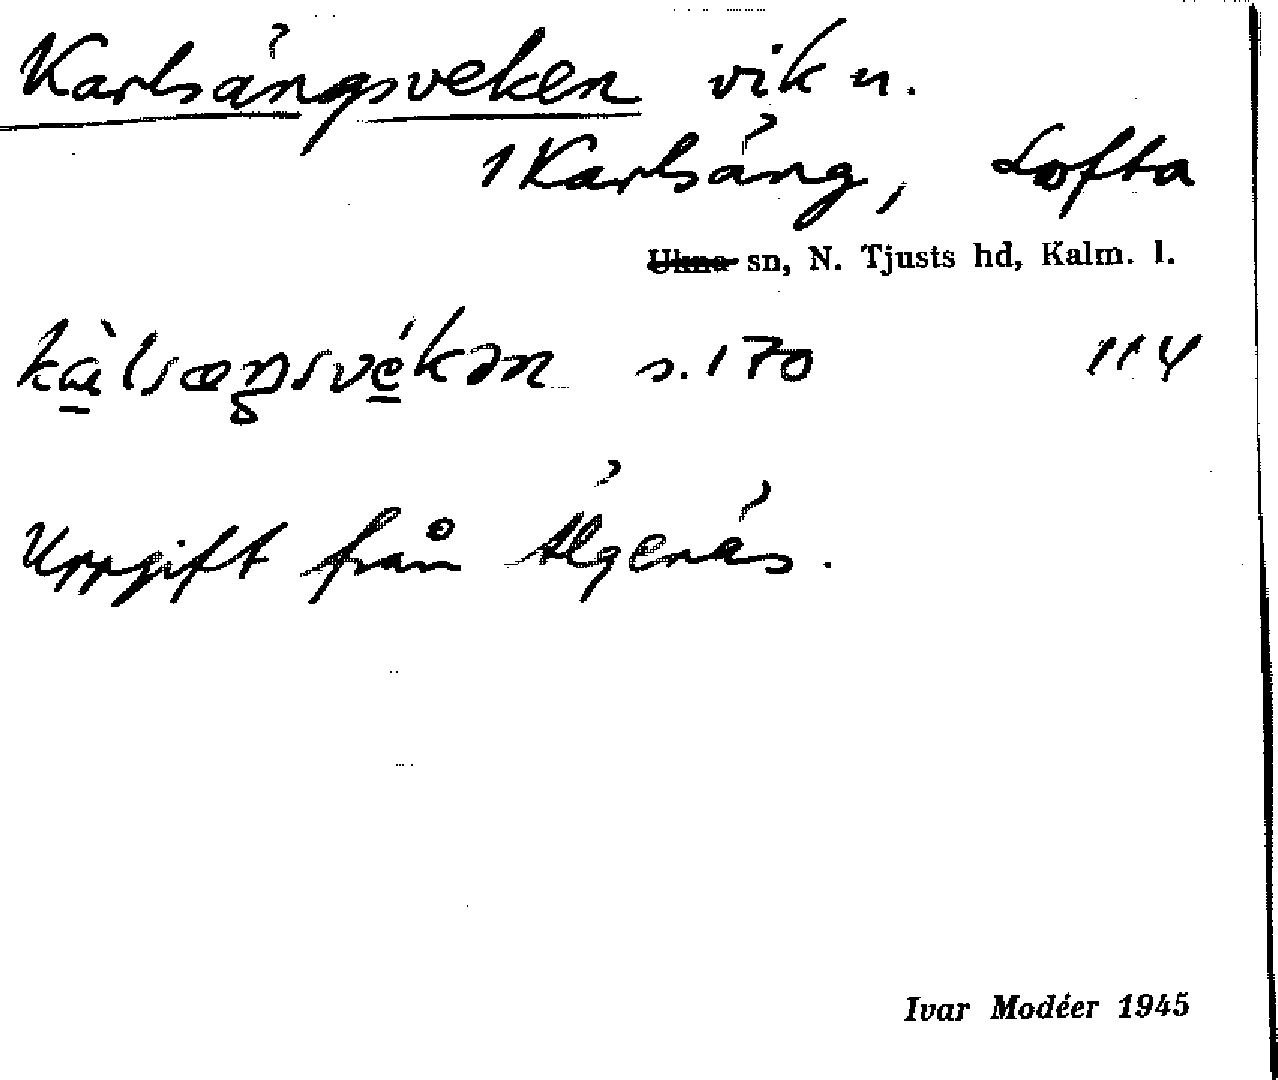 Karlsängsveken vik n.
1 Karlsäng, Lofta
Ukna sn, N. Tjusts hd, Kalm. l.
s. 170 114
Uppgift från Älgenäs.
Ivar Modéer 1945